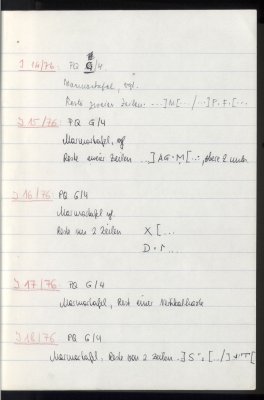 J 14/76: PQ G/4
Marmortafel, vgl.
Reste zweier Zeilen: ...]M[.../...]P.F.[...
J 15/76: PQ G/4
Marmortafel, vgl
Reste einer Zeilen ...]AG.M[...
J 16/76: PQ G/4
Marmortafel vgl.
Reste von 2 Zeilen X[...
J 17/76: PQ G/4
Marmortafel, Rest einer
J 18/76 PQ G/4
Marmortafel. Reste von 2 Zeilen